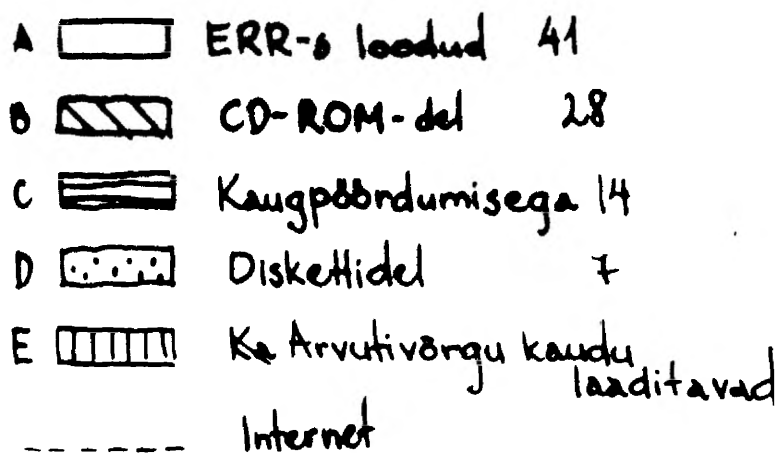 A ERR-s loodud 41
B CD-ROM-del 28
C Kaugpöördumisega 14
D Diskettidel 7
E Ka Arvutivõrgu kaudu
laaditavad
Internet